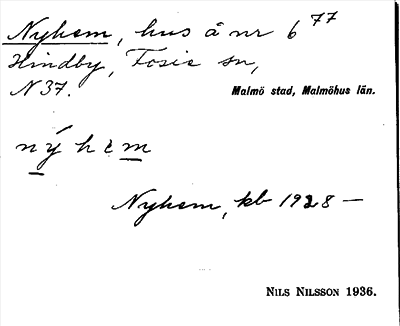 Nyhem, hus å nr 6 77
Hindby, Fosie sn,
N 37.
Malmö stad, Malmöhus län.
nýhem
Nyhem, kb 1928 —
NILS NILSSON 1936.